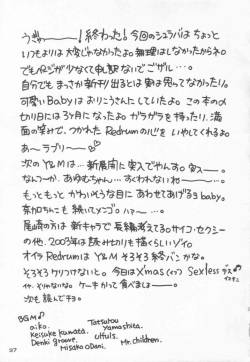 うぎゃー!終わった!今回のシュラバはちょっと
いつもよりは大変じゃなかったよ。無理はしなかったからネ
でもページが少なくて申し訳ないでゴザル…。
自分でもまっさか新刊り出るとは実は思ってなかったり。
可愛いBabyはおりこうさんにしていたよ。この本の〆
切り日には3ヶ月になったよ ガラガラを持ったり、満
面の笑みで、つかれたRedrumの心をいやしてくれるよ
あーラブリー
次のY&Mは…新展開に突入でやんす。突入ー。
なんつーか、あゆむちゃん…すくわれないねー
もっともっとかわいそうな目にあわせてあげるうbaby.
奈加ちゃんも続いてンゴ。ハァー…。
尾崎の方は新キャラで長編考えてるの。サイコ・セクシー
の他、2003年は読み切りも描くらしいゾイ
オイラRedrumはY&Mそろそろ終盤かな。
そろそろケリつけないと。今日はXmasイヴ Sexlessデス
イヤ、そりゃいいな。ケーキがって食べましょー
次も読んでチョ。
BGM
aiko. Tatsurou
Keisuke kuwata. Yamashita.
Denki groove. Ulfuls.
Hisako oDani. Mr. children.
27